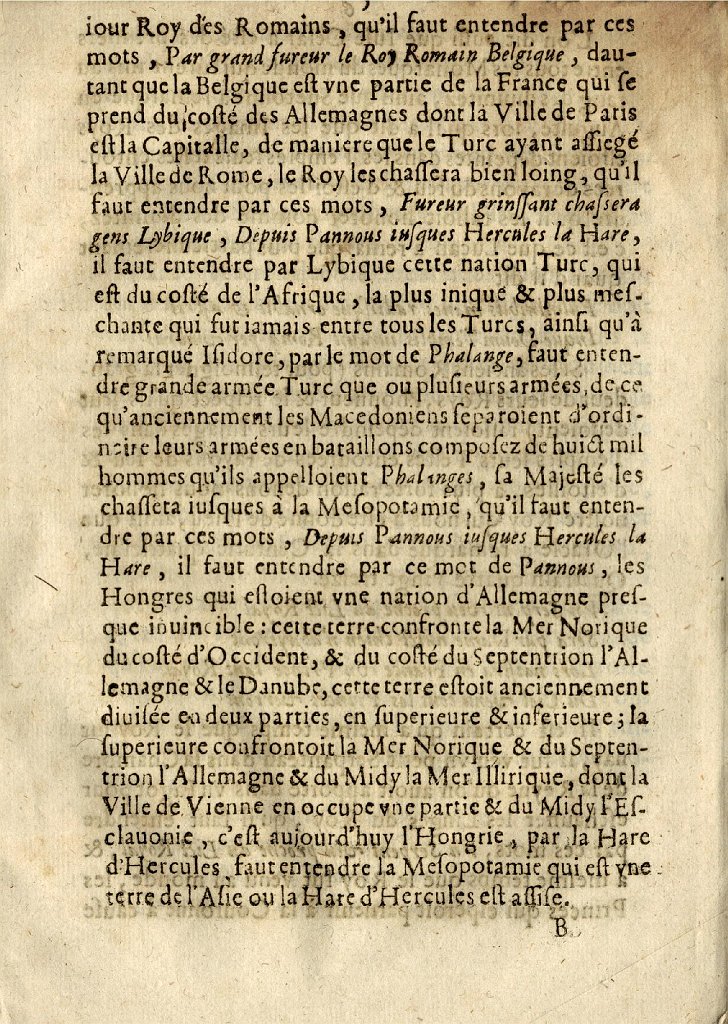 iour Roy des Romains, qu'il faut entendre par ces
mots, Par grand fureur le Roy Romain Belgique, dau-
tant que la Belgique eſt vne partie de la France qui ſe
prend du coſté des Allemagnes dont la Ville de Paris
eſt la Capitalle, de maniere que le Turc ayant aſſiegé
la Ville de Rome, le Roy les chaſſera bien loing, qu'il
faut entendre par ces mots, Fureur grinſſant chaſſera
gens Lybique, Depuis Pannous iuſques Hercules la Hare,
il faut entendre par Lybique cette nation Turc, qui
eſt du coſté de l'Afrique, la plus inique & plus meſ-
chante qui fut iamais entre tous les Turcs, ainſi qu'à
remarqué Iſidore, par le mot de Phalange, faut enten-
dre grande armée Turc que ou pluſieurs armées, de ce
qu'anciennement les Macedoniens ſeparoient d'ordi-
naire leurs armées en bataillons compoſez de huict mil
hommes qu'ils appelloient Phalanges, ſa Majeſté les
chaſſera iuſques à la Meſopotamie, qu'il faut enten-
dre par ces mots, Depuis Pannous iuſques Hercules la
Hare, il faut entendre par ce mot de Pannous, les
Hongres qui eſtoient vne nation d'Allemagne preſ-
que inuincible: cette terre confronte la Mer Norique
du coſté d'Occident, & du coſté du Septentrion l'Al-
lemagne & le Danube, cette terre eſtoit anciennement
diuiſée en deux parties, en ſuperieure & inferieure; la
ſuperieure confrontoit la Mer Norique & du Septen-
trion l'Allemagne & du Midy la Mer Illirique, dont la
Ville de Vienne en occupe vne partie & du Midy l'Eſ-
clauonie, c'eſt aujourd'huy l'Hongrie, par la Hare
d'Hercules, faut entendre la Meſopotamie qui eſt vne
terre de l'Aſie ou la Hare d'Hercules eſt aſſiſe.
B